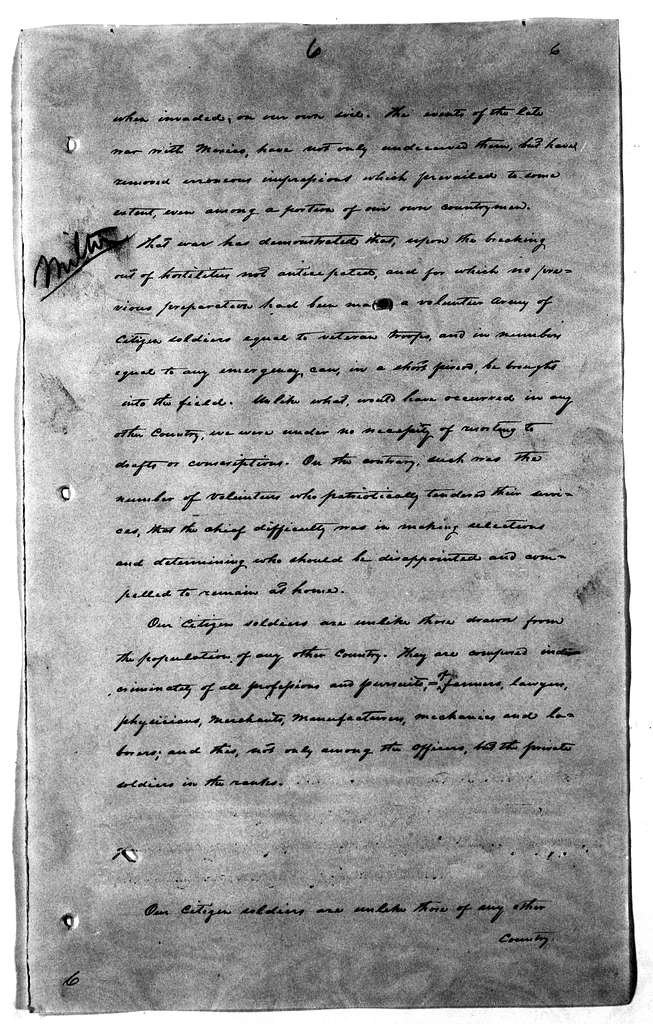 6
6
when invaded, on our own soil. The events of the late
war with Mexico, have not only undeceived them, but have
removed erroneous impressions which prevailed to some
extent, even among a portion of our own countrymen.
That war has demonstrated that, upon the breaking
out of hostilities not anticipated, and for which no pre=
vious preparation had been ma a volunteer Army of
Citizen soldiers equal to veteran troops, and in numbers
equal to any emergency, can, in a short period, be brought
into the field. Unlike what, would have occurred in any
other Country, we were under no necessity of resorting to
drafts or conscriptions. On the contrary, such was the
number of volunteers who patriotically tendered their servi=
ces, that the chief difficulty was in making selections
and determining who should be disappointed and com=
pelled to remain at home.
Our Citizen soldiers are unlike those drawn from
the population of any other Country. They are composed indis
criminately of all professions and pursuits,= of farmers, lawyers,
physicians, merchants, manufacturers, mechanics and la=
borers; and this, not only among the officers, but the private
soldiers in the ranks.
Our Citizen soldiers are unlike those of any other
Country.
6